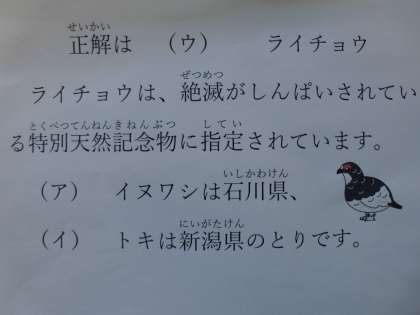 せいかい
正解は （ウ） ライチョウ
ぜつめつ
ライチョウは、絶滅がしんぱいされてい
とくべつてんねんきねんぶつ してい
る特別天然記念物に指定されています。
いしかわけん
（ア） イヌワシは石川県、
にいがたけん
（イ） トキは新潟県のとりです。